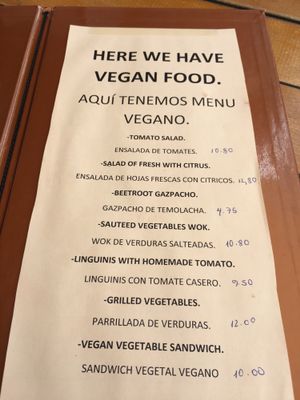 HERE WE HAVE
VEGAN FOOD.
AQUÍ TENEMOS MENU
VEGANO.
-TOMATO SALAD.
ENSALADA DE TOMATES. 10.80
-SALAD OF FRESH WITH CITRUS.
ENSALADA DE HOJAS FRESCAS CON CITRICOS. 12,80
-BEETROOT GAZPACHO.
GAZPACHO DE TEMOLACHA. 4.75
-SAUTEED VEGETABLES WOK.
WOK DE VERDURAS SALTEADAS. 10.80
-LINGUINIS WITH HOMEMADE TOMATO.
LINGUINIS CON TOMATE CASERO. 9.50
-GRILLED VEGETABLES.
PARRILLADA DE VERDURAS. 12.00
-VEGAN VEGETABLE SANDWICH.
SANDWICH VEGETAL VEGANO 10.00